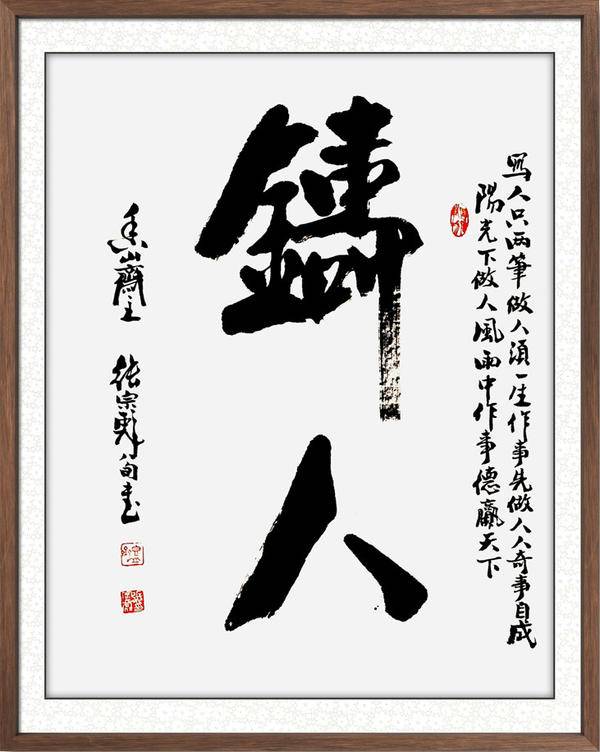 写人只两筆做人須一生作事先做人人奇事自成
陽光下做人風雨中作事德贏天下
鑄人
香山齋主 張宗 八旬書